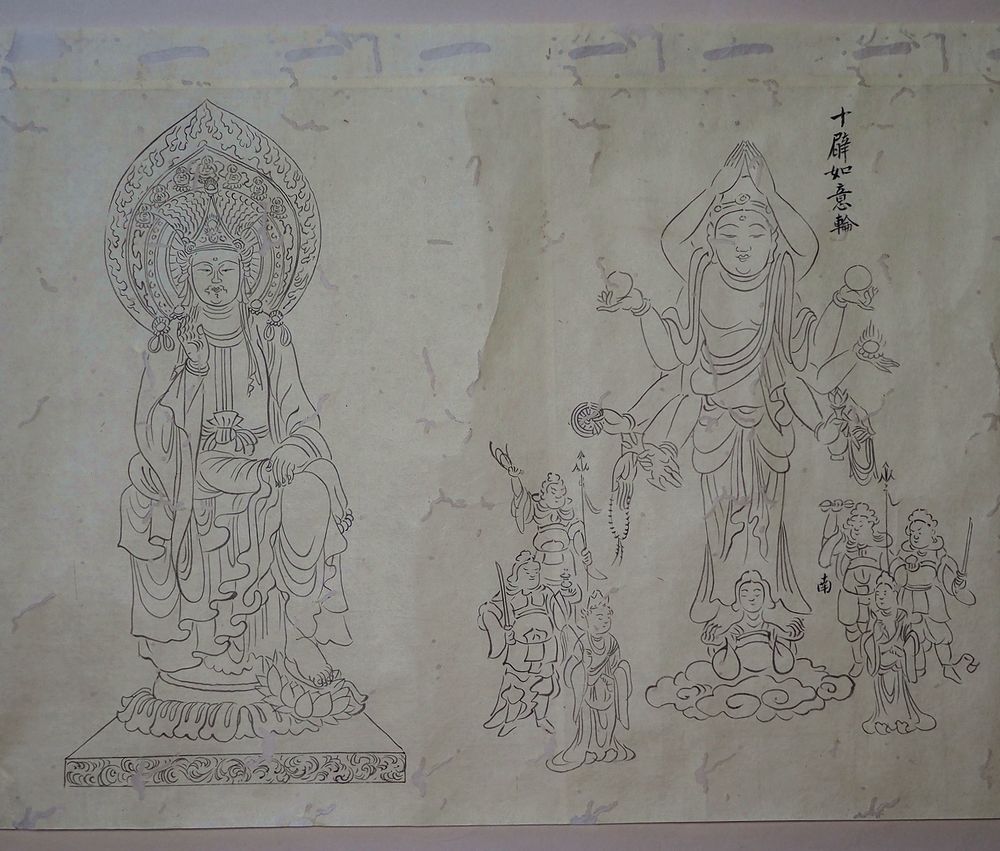 十臂如意輪
南